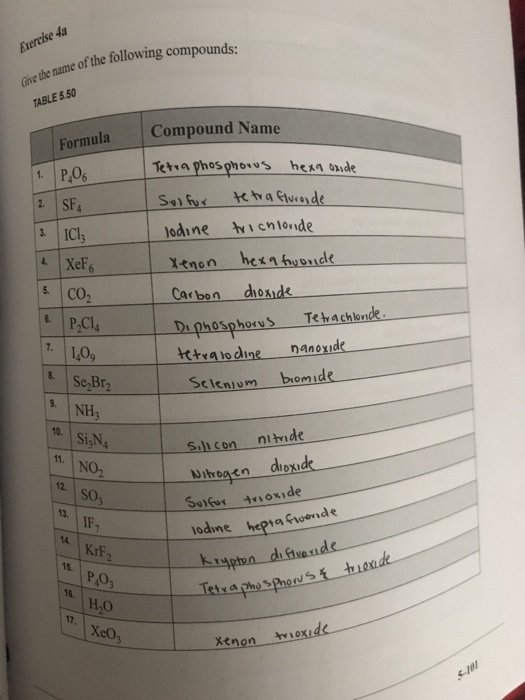 Exercise 4a
Give the name of the following compounds:
TABLE 5.50
Formula Compound Name
1. P₄O₆ Tetraphosphorus hexaoxide
2. SF₄ Sulfur tetrafluroide
3. ICl₃ Iodine trichloride
4. XeF₆ Xenon hexafluoride
5. CO₂ Carbon dioxide
6. P₂Cl₄ Diphosphorus Tetrachloride.
7. I₄O₉ tetraiodine nanoxide
8. Se₂Br₂ Selenium bromide
9. NH₃
10. Si₃N₄ Silicon nitride
11. NO₂ Nitrogen dioxide
12. SO₃ Sulfur trioxide
13. IF₇ Iodine heptafluoride
14. KrF₂ Krypton difluoride
15. P₄O₃ Tetraphosphorus trioxide
16. H₂O
17. XeO₃ Xenon trioxide
5-101